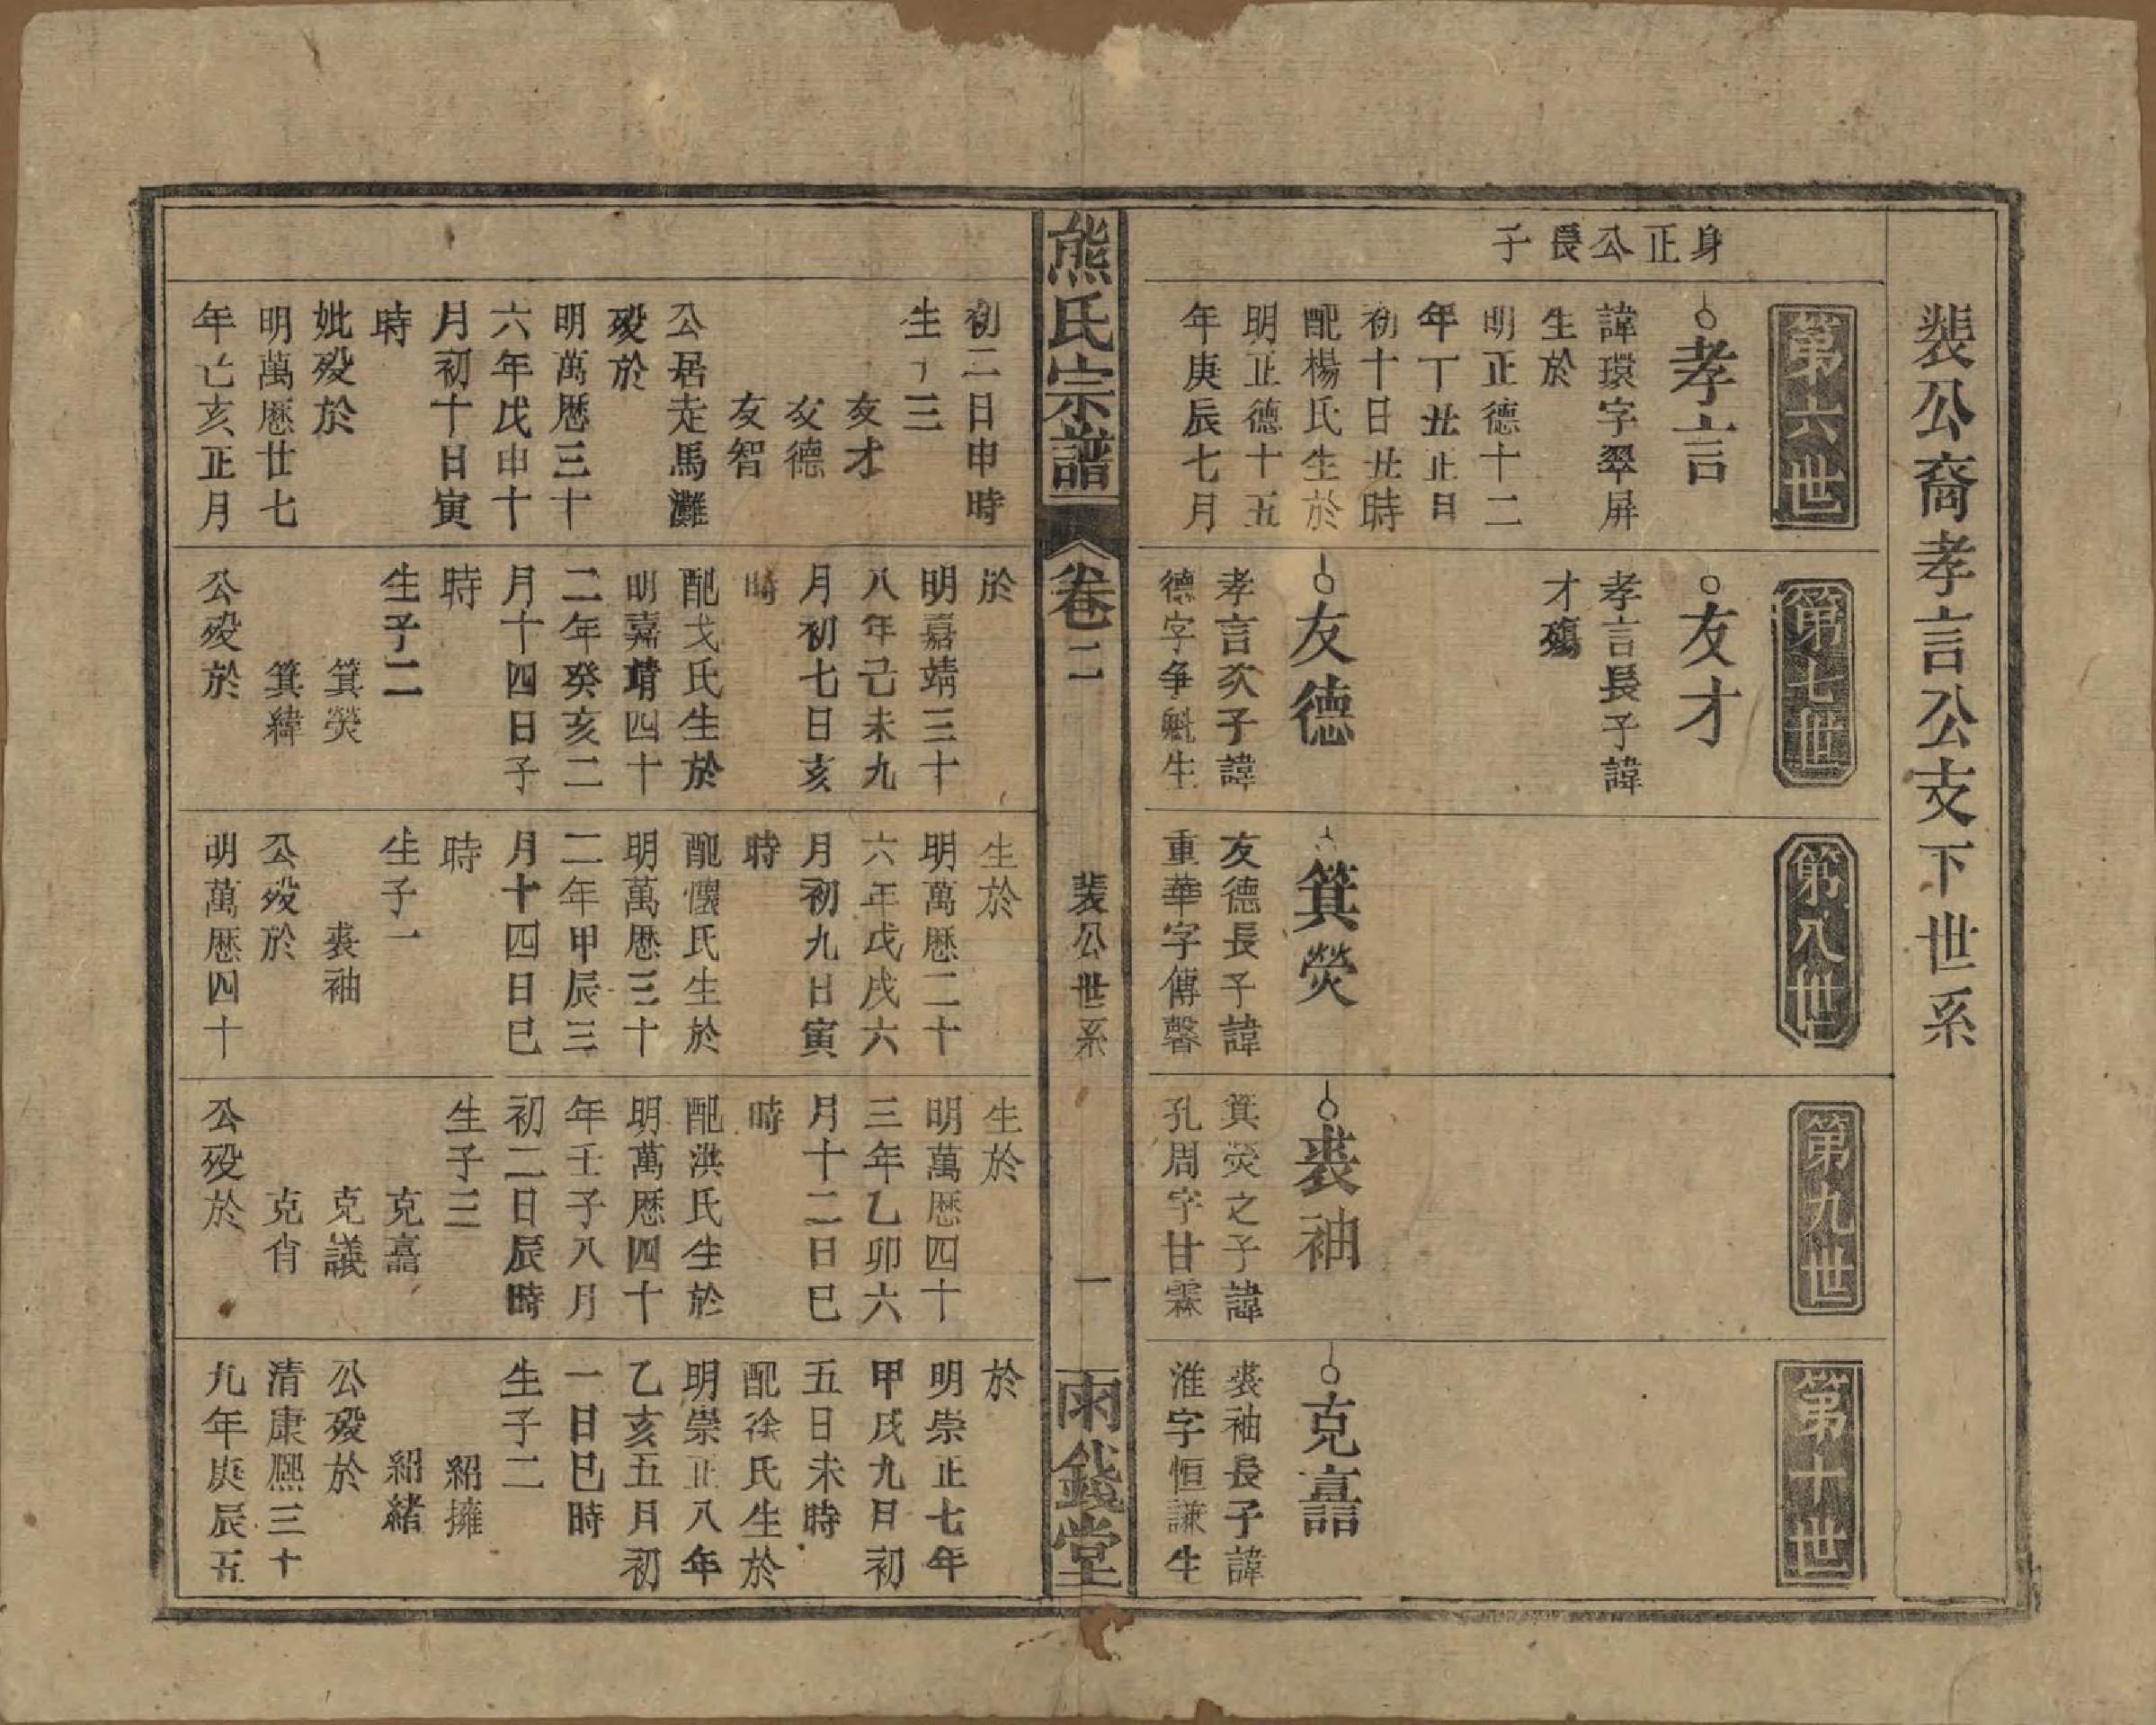 裴公裔孝言公支下世系
身正公長子
第六世
孝言
諱環字翠屏
生於
明正德十二
年丁丑正月
初十日丑時
配楊氏生於
明正德十五
年庚辰七月
第七世
友才
孝言長子諱
才殤
友德
孝言次子諱
德字爭魁生
第八世
箕熒
友德長子諱
重華字傳馨
第九世
裘袖
箕熒之子諱
孔周字甘霖
第十世
克嘉
裘袖長子諱
淮字恒謙生
熊氏宗譜
卷二
裴公世系
一
雨錢堂
初二日申時
生子三
友才
友德
友智
公居走馬灘
歿於
明萬厯三十
六年戊申十
月初十日寅
時
妣歿於
明萬厯廿七
年亡亥正月
於
明嘉靖三十
八年己未九
月初七日亥
時
配戈氏生於
明嘉靖四十
二年癸亥二
月十四日子
時
生子二
箕熒
箕緯
公歿於
生於
明萬厯二十
六年戊戌六
月初九日寅
時
配懷氏生於
明萬厯三十
二年甲辰三
月十四日巳
時
生子一
裘袖
公歿於
明萬厯四十
生於
明萬厯四十
三年乙卯六
月十二日巳
時
配洪氏生於
明萬厯四十
年壬子八月
初二日辰時
生子三
克嘉
克議
克肖
公歿於
於
明崇正七年
甲戌九月初
五日未時
配徐氏生於
明崇正八年
乙亥五月初
一日巳時
生子二
紹擁
紹緒
公歿於
清康熙三十
九年庚辰五